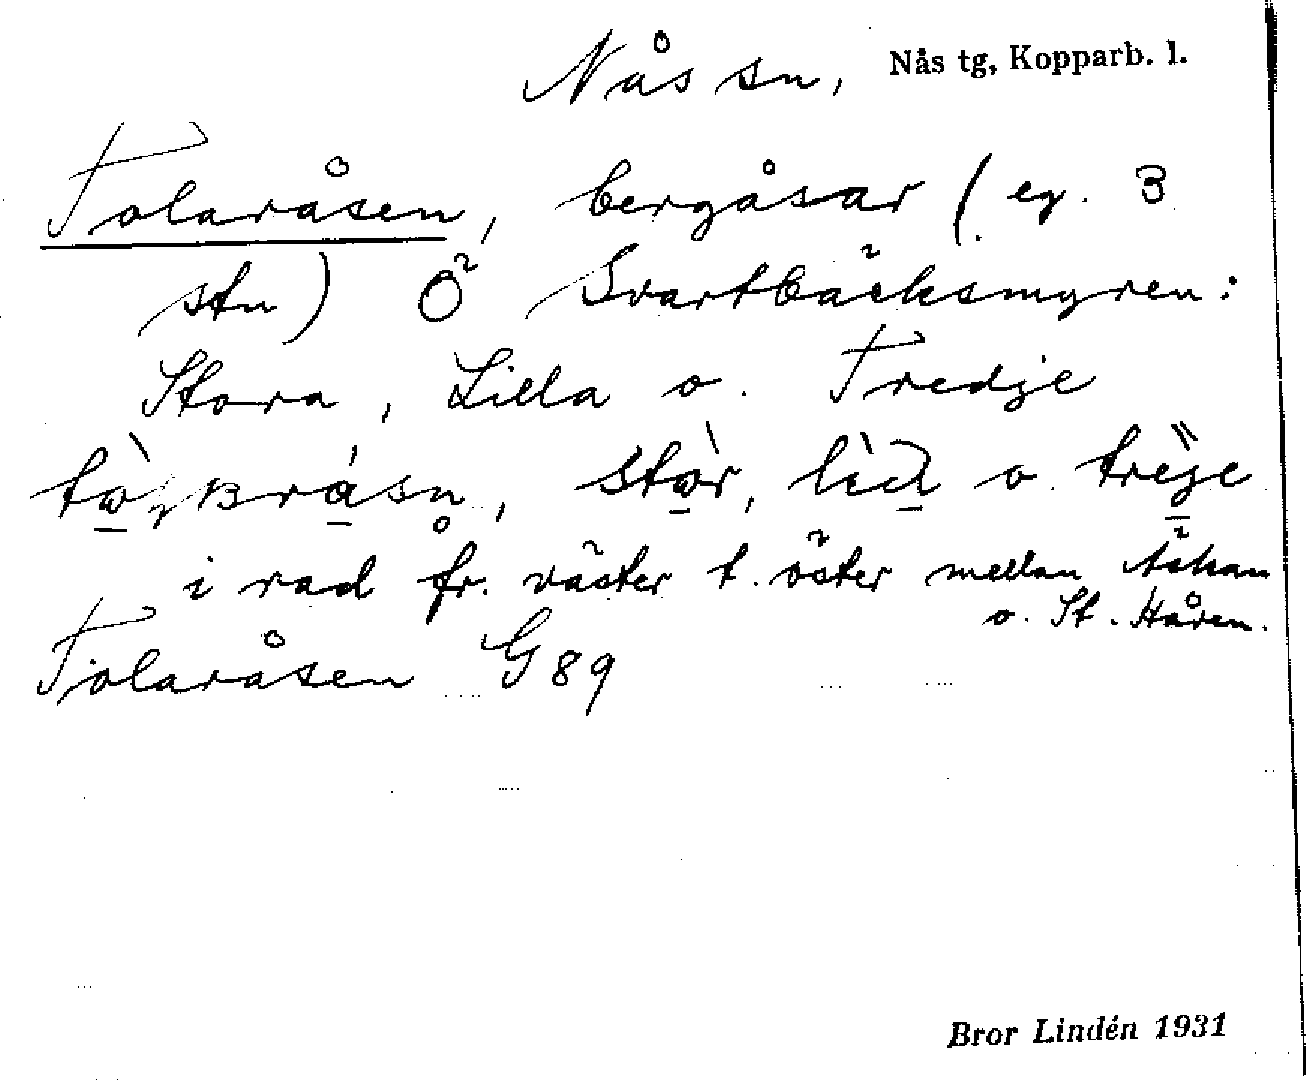 Nås sn, Nås tg, Kopparb. l.
Tolaråsen, bergåsar (eg. 3
stn) Ö Svartbäcksmyren:
Stora, Lilla o. Tredje
stώr, o.
i rad fr. väster t. öster mellan
o. St. Håren.
Tolaråsen G89
Bror Lindén 1931